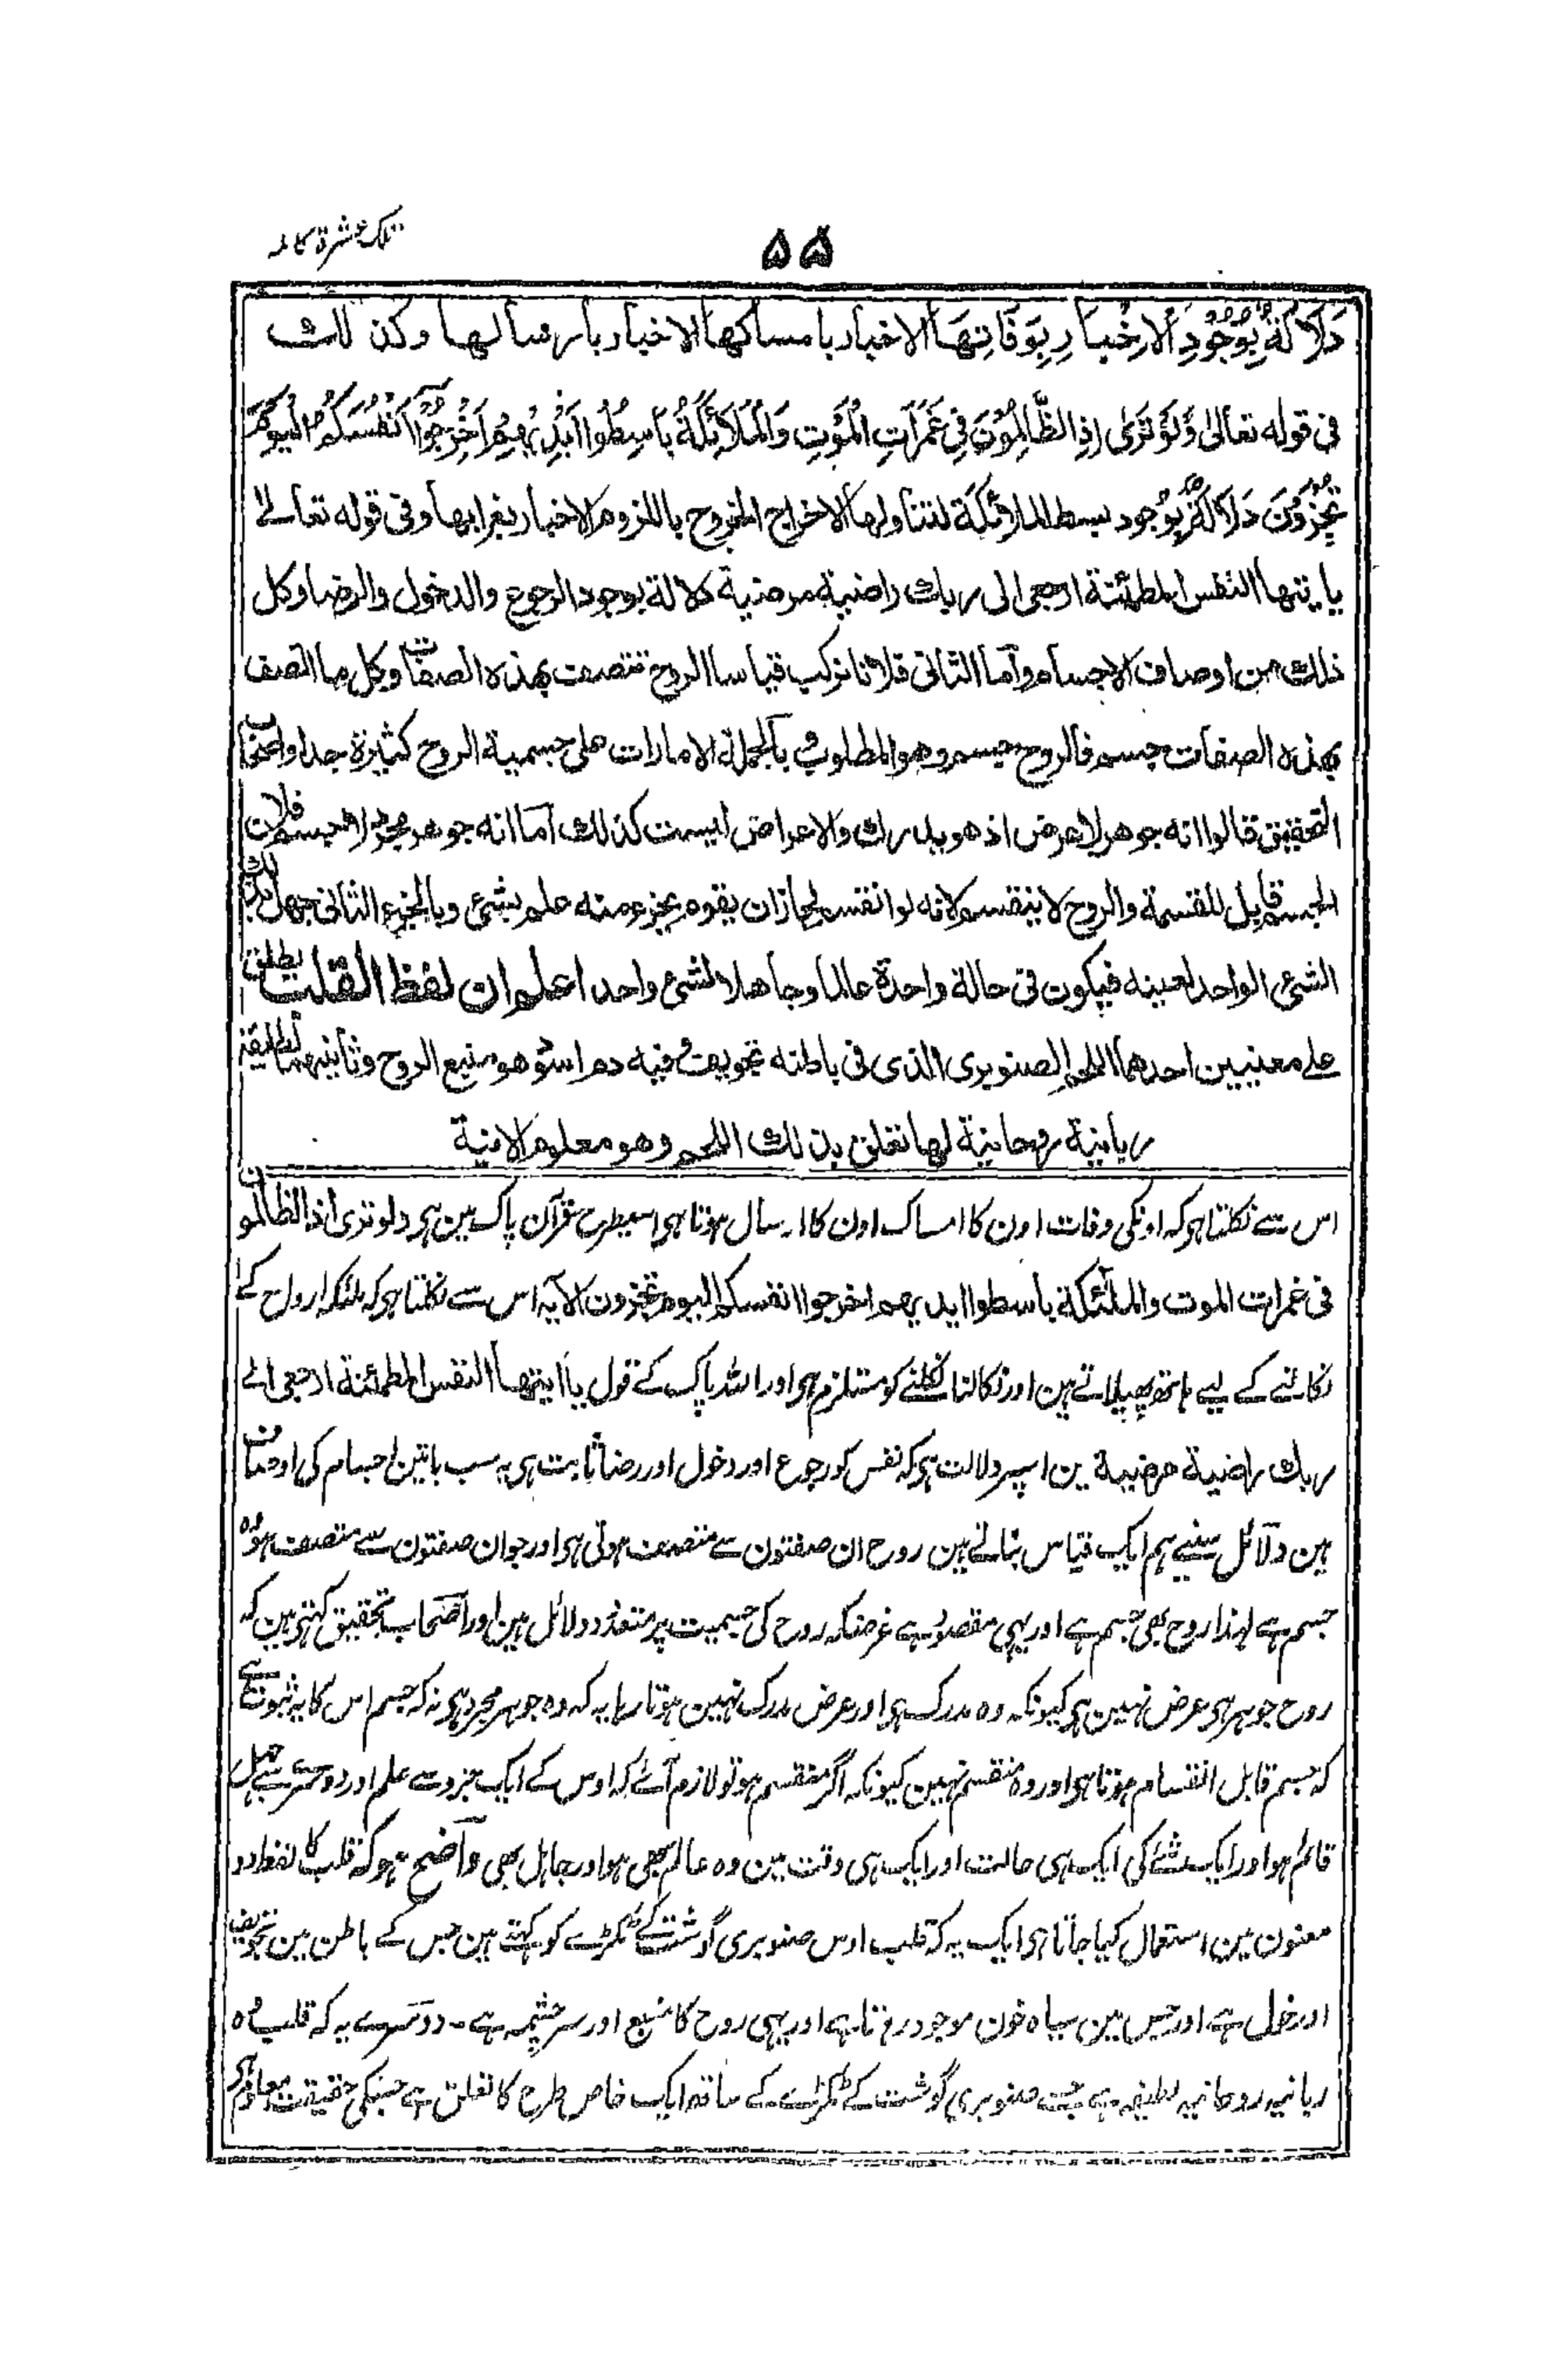 تلک عشرۃ کاملہ
۵۵
دَلَالَةٌ بِوُجُوْدِ الْاِخْبَارِ بِوَفَاتِهَا الاخبار بامساكها الاخبار بارسالها وكذلك
فى قوله تعالىٰ وَلَوْ تَرٰى اِذِ الظَّالِمُوْنَ فِىْ غَمَرَاتِ الْمَوْتِ وَالْمَلَائِكَةُ بَاسِطُوْا اَيْدِيْهِمْ اَخْرِجُوْا اَنْفُسَكُمُ الْيَوْمَ
تُجْزَوْنَ دَلَالَةٌ بِوُجود بسط الملائكة لتناولها الاخراج الخروج باللزوم الاخبار بغرابها وفى قوله تعالے
يايتها النفس المطمئنة ارجعى الى ربك راضية مرضية دلالة بوجود الرجوع والدخول والرضا وكل
ذلك من اوصاف الاجسام واما الثانى فلانا نركب قياسا الروح تتصف بهذه الصفات وكل ما اتصف
بهذه الصفات جسم فالروح جسم وهو المطلوب و بالجملة الامارات على جسمية الروح كثيرة جدا واصحاب
التحقيق قالوا انه جوهر لا عرض اذ هو يدرك والاعراض ليست كذلك اما انه جوهر مجرد لا جسم فلان
الجسم قابل للقسمة والروح لا ينقسم لانه لو انقسم لجاز ان يقوم بجزء منه علم بشئ وبالجزء الثانى جهل بذلك
الشئ الواحد بعينه فيكون فى حالة واحدة عالما وجاهلا لشئ واحد اعلم ان لفظ القلب يطلق
على معنيين احدهما اللحم الصنوبرى الذى فى باطنه تجويف وفيه دم اسود هو منبع الروح وثانيهما لطيفة
ربانية روحانية لها تعلق بذلك اللحم وهو معلوم الانية
اس سے نکلتا ہو کہ اونکی وفات اون کا امساک اون کا ارسال ہوتا ہو اسیطرح قرآن پاک مین ہو ولو ترى اذ الظالمون
فى غمرات الموت والملئكة باسطوا ايديهم اخرجوا انفسكم اليوم تجزون الآیہ اس سے نکلتا ہو کہ ملئکہ ارواح کے
نکالنے کے لیے ہاتھ پھیلاتے ہین اور نکالنا نکلنے کو مستلزم ہو اور اللہ پاک کے قول يا ايتها النفس المطمئنة ارجعى الے
ربك راضية مرضية مین اسپر دلالت ہو کہ نفس کو رجوع اور دخول اور رضا ثابت ہی یہ سب باتین اجسام کی اوصاف
ہین دلائل سنیے ہم ایک قیاس بناتے ہین روح ان صفتون سے متصف ہوتی ہو اور جو ان صفتون سے متصف ہو وہ
جسم ہے لہذا روح بھی جسم ہے اور یہی مقصود ہے غرضکہ روح کی جسمیت پر متعدد دلائل ہین اور اصحاب تحقیق کہتے ہین کہ
روح جوہر ہو عرض نہین ہو کیونکہ وہ مدرک ہو اور عرض مدرک نہین ہوتا رہا یہ کہ وہ جوہر مجرد ہو نہ کہ جسم اس کا یہ ثبوت ہے
کہ جسم قابل انقسام ہوتا ہو اور وہ منقسم نہین کیونکہ اگر منقسم ہو تو لازم آئے کہ اوس کے ایک جزو سے علم اور دوسرے سے جہل
قائم ہو اور ایک شئے کی ایک ہی حالت اور ایک ہی وقت مین وہ عالم بھی ہو اور جاہل بھی واضح ہو کہ قلب کا لفظ دو
معنون مین استعمال کیا جاتا ہو ایک یہ کہ قلب اوس صنوبری گوشت کے ٹکڑے کو کہتے ہین جس کے باطن مین تجویف
اور خول ہے اور جس مین سیاہ خون موجود رہتا ہے اور یہی روح کا منبع اور سرچشمہ ہے۔ دوسرے یہ کہ قلب وہ
ربانیہ روحانیہ لطیفہ ہے جسے صنوبری گوشت کے ٹکڑے کے ساتھ ایک خاص طرح کا تعلق ہے جسکی حقیقت معلوم ہو